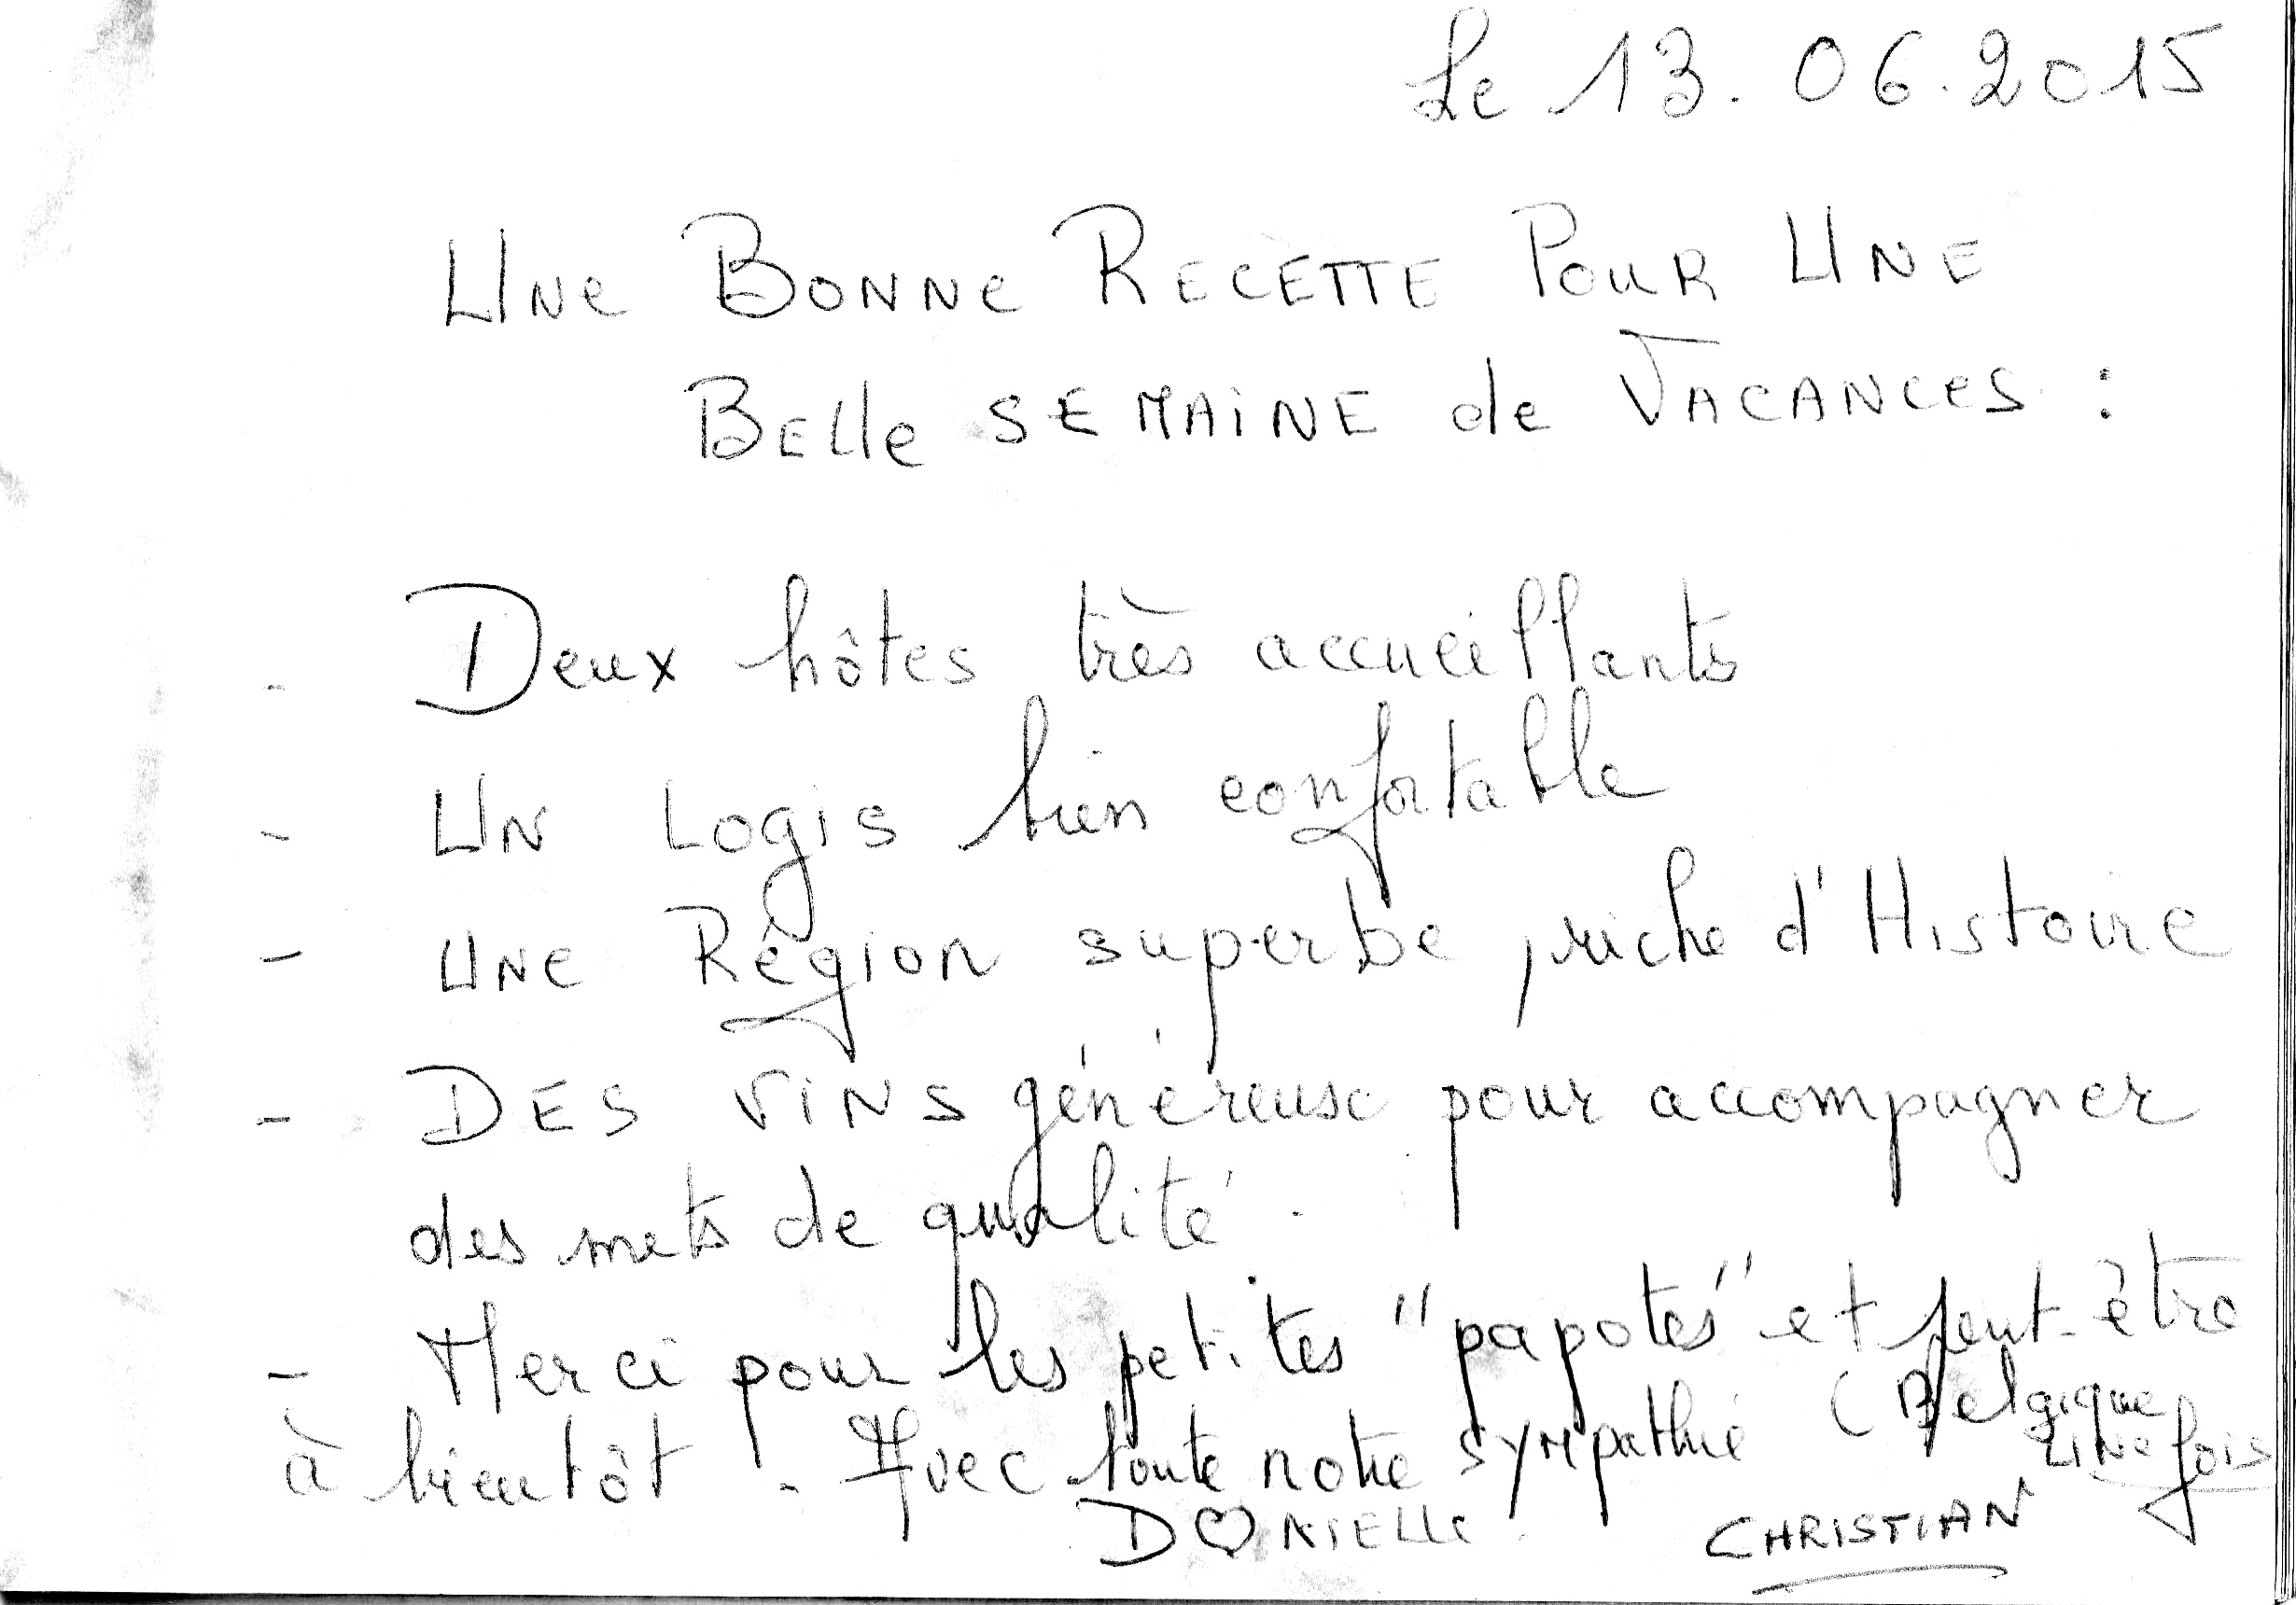 Le 13.06.2015
UNe BONNe RECETTE POUR UNE
BELLe SEMAiNE de VACANCeS :
- Deux hôtes très accueillants
- UN Logis bien confortable
- UNe Région superbe, riche d'Histoire
- DES ViNS généreuse pour accompagner
des mets de qualité.
- Merci pour les petites "papotes" et peut-être
à bientôt. Avec toute notre sympathie (Belgique
UNe fois
D♡NIELLe. CHRISTIAN